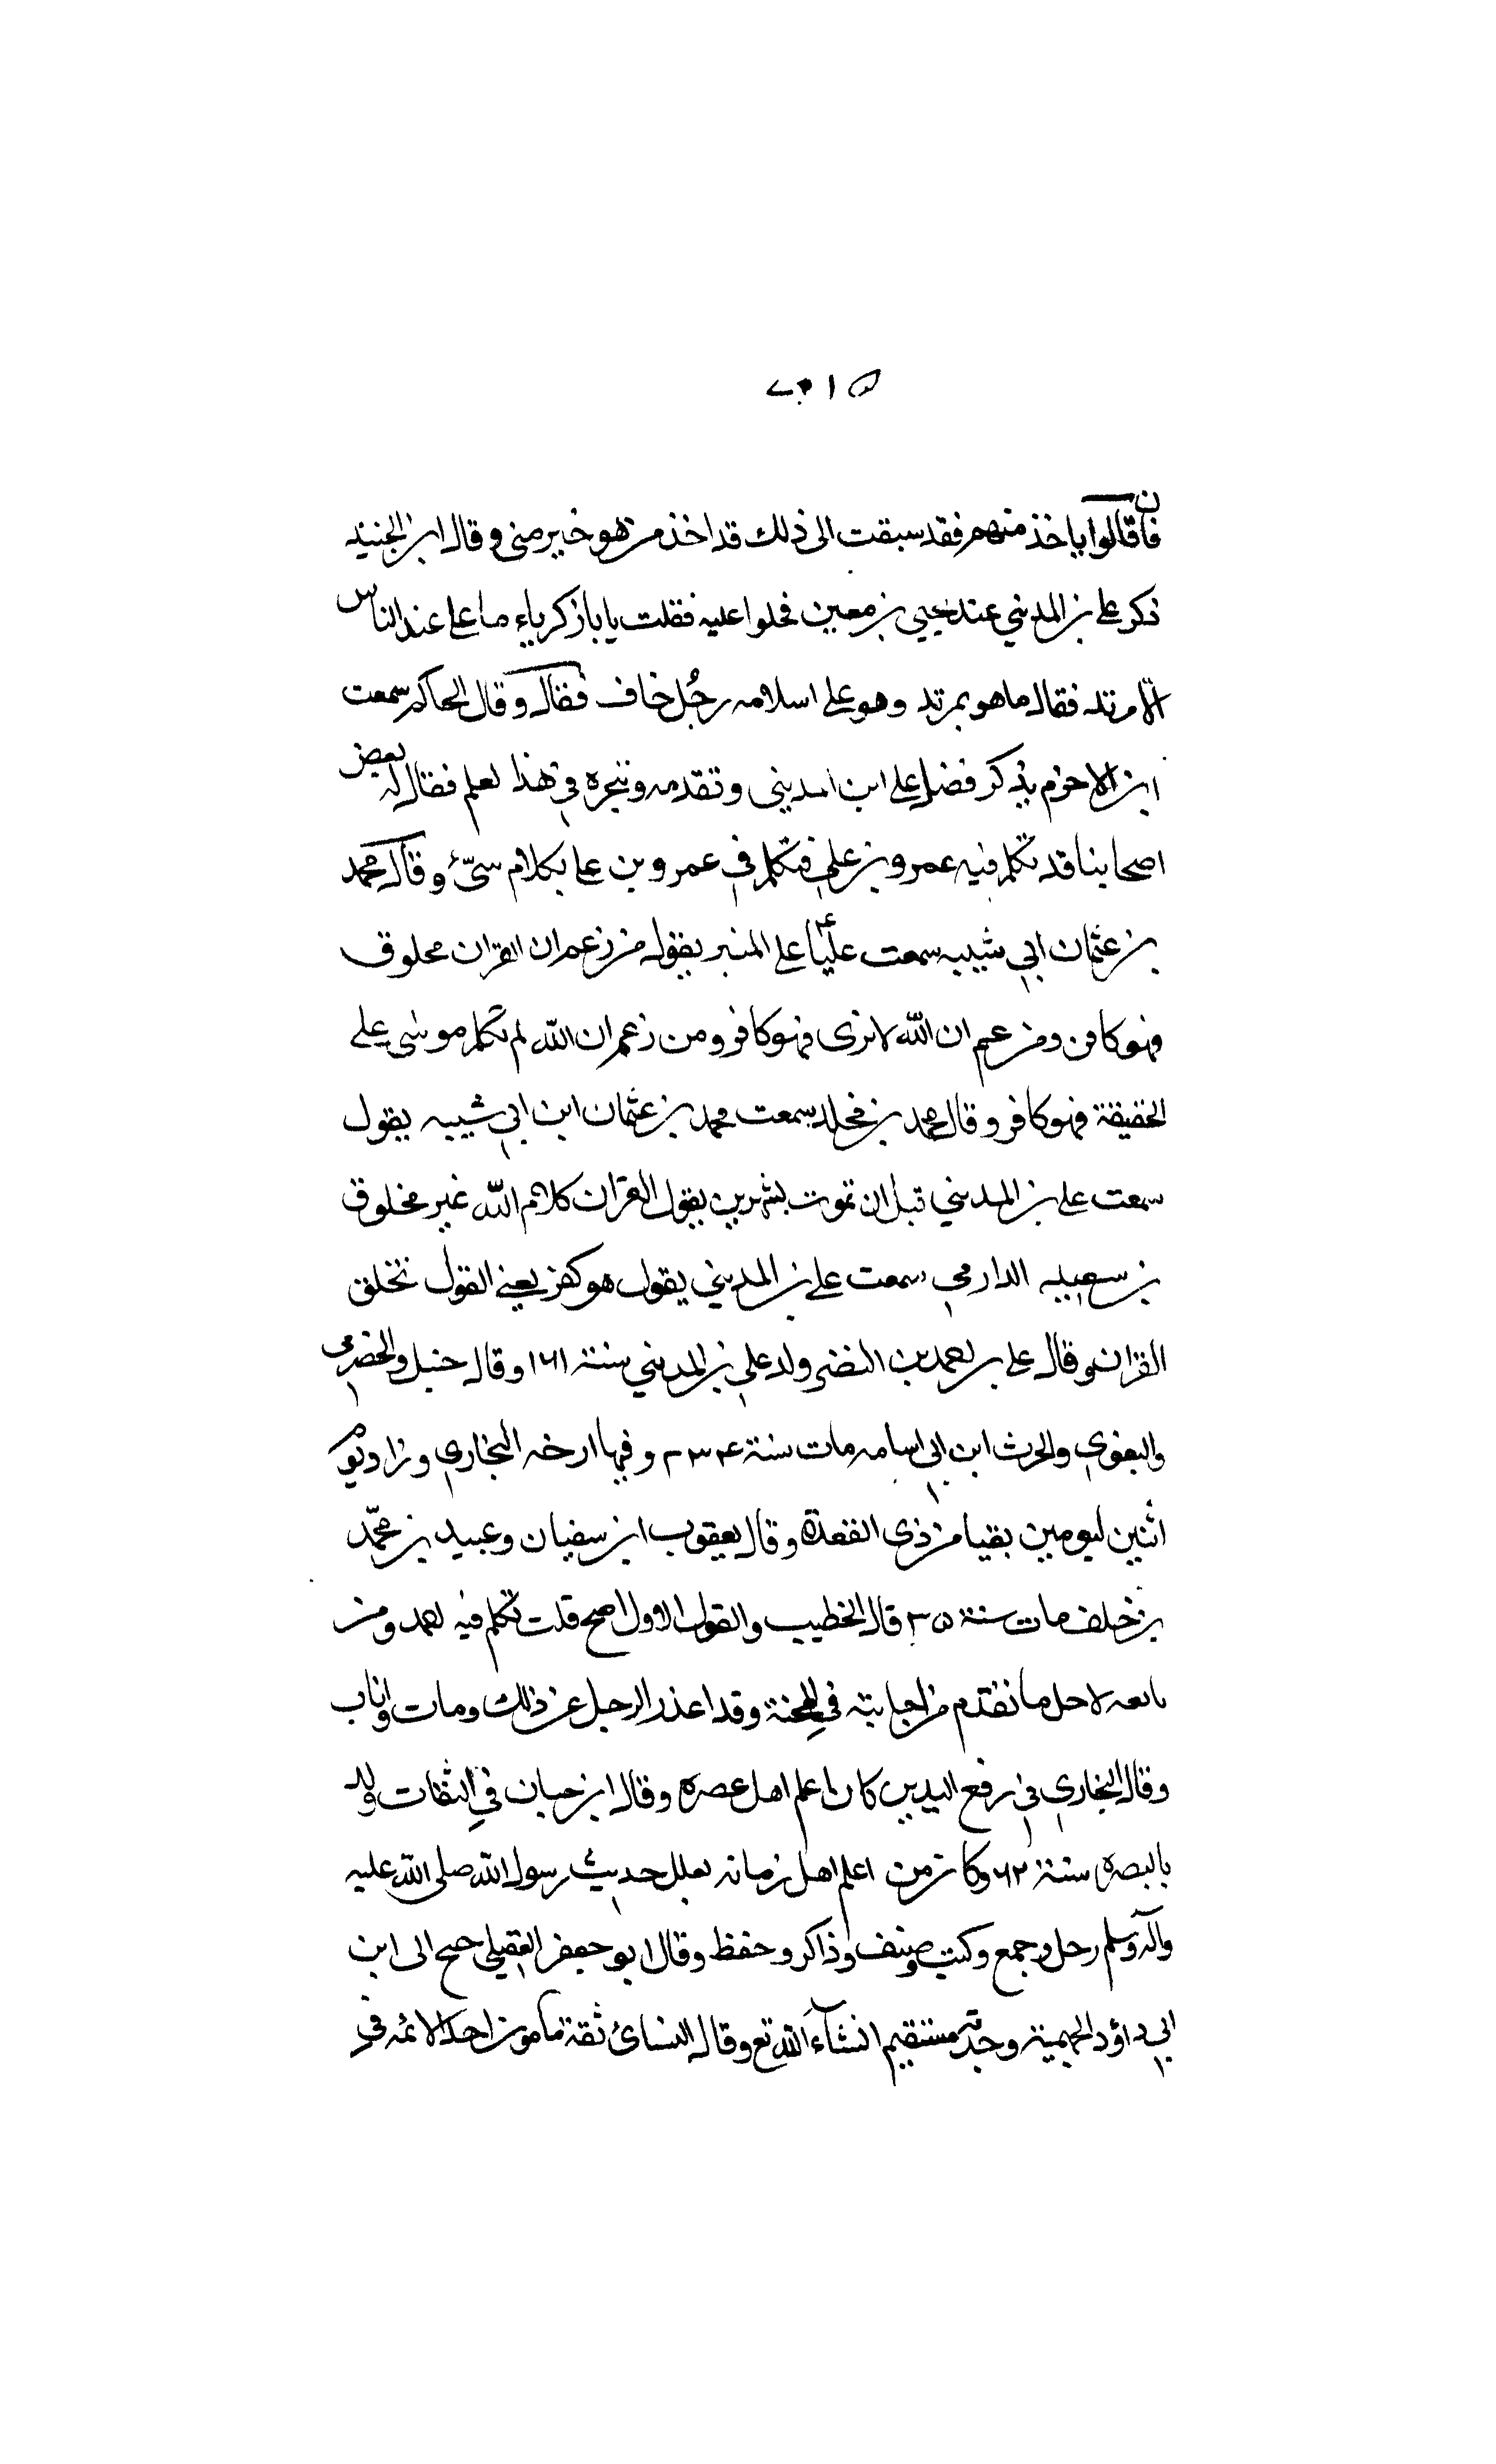 فان قالوا ياخذ منهم فقد سبقت الى ذلك قد اخذ من هو خير منى وقال ابن الجنيد
ذكر على بن المديني عند يحيى بن معين فحلوا عليه فقلت يا با زكرياء ما على عند الناس
الا مرتد فقال ما هو بمرتد وهو على اسلامه رجُل خاف فقال وقال الحاكم سمعت
ابن الاخزم يذكر فضل على ابن المديني وتقدمه وتبحره في هذا لعلم فقال له بعض
اصحابنا قد تكلم فيه عمرو بن علي فتكلم في عمرو بن على بكلام سىّٔ وقال محمد
بن عثمان ابي شيبه سمعت عليًا على المنبر يقول من زعم ان القران مخلوق
فهو كافر ومن زعم ان الله لا نرى فهو كافر ومن زعم ان الله لم تكلم موسى على
الحقيقة فهو كافر وقال محمد بن مخلد سمعت محمد بن عثمان ابن ابي شيبه يقول
سمعت على بن المديني قبل ان تموت بشهرين يقول القران كلام الله غير مخلوق
بن سعيد الدارمي سمعت على بن المديني يقول هو كفر يعنے القول تخلق
القران وقال على بن احمد بن النضر ولد على بن المديني سنة ١٦١ وقال حنبل والحضرمى
والبغوى والحرث ابن ابى اسامه مات سنة ٢٣٤ وفيها ارخه البخارى وزاد يوم
اثنين ليومين بقيا من ذى القعدة وقال يعقوب ابن سفيان وعبيد بن محمّد
بن خلف مات سنة ٣٥ قال الخطيب والقول الاول اصح قلت تكلم فيه احمد ومن
تابعه لاجل ما تقدم من اجابته في المحنة وقد اعذر الرجل عن ذلك ومات واناب
وقال البخارى في رفع اليدين كان اعلم اهل عصره وقال ابن حبان في الثقات ولد
بالبصره سنة ٦٢ وكان من اعلم اهل زمانه بعلل حديث رسول الله صلى الله عليه
وآله وسلم رحل وجمع وكتب وصنف وذاكر وحفظ وقال ابو جعفر العقيلى جنح الى ابن
ابي داؤد الجهمية وحديثه مستقيم انشآء الله تع وقال النسائ ثقة مأمون احد الائمه في